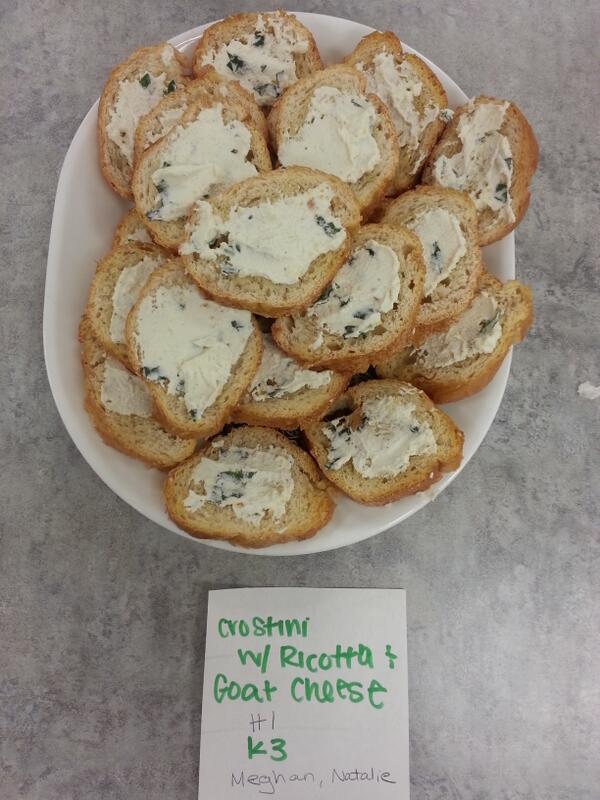 crostini
w/ Ricotta &
Goat Cheese
#1
K3
Meghan, Natalie